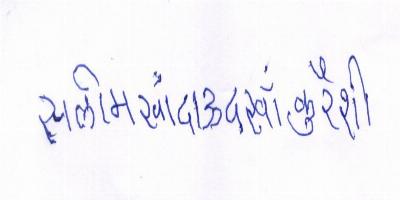 સલીમખાં દાઊદખાં કુરેશી